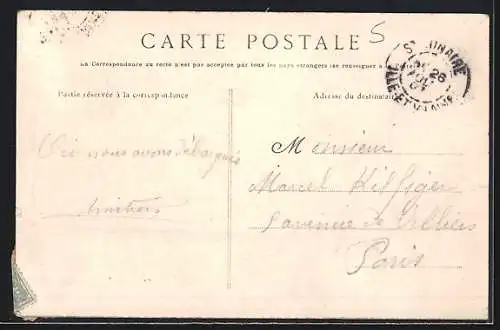 CARTE POSTALE
5
La Correspondance au recto n'est pas acceptée par tous les pays étrangers (se renseigner à la
Partie réservée à la correspondance
Adresse du destinataire
ILLE-ET-VILAINE
26
Ici nous avons débarqué
Monsieur
Marcel
avenue de Villiers
Paris